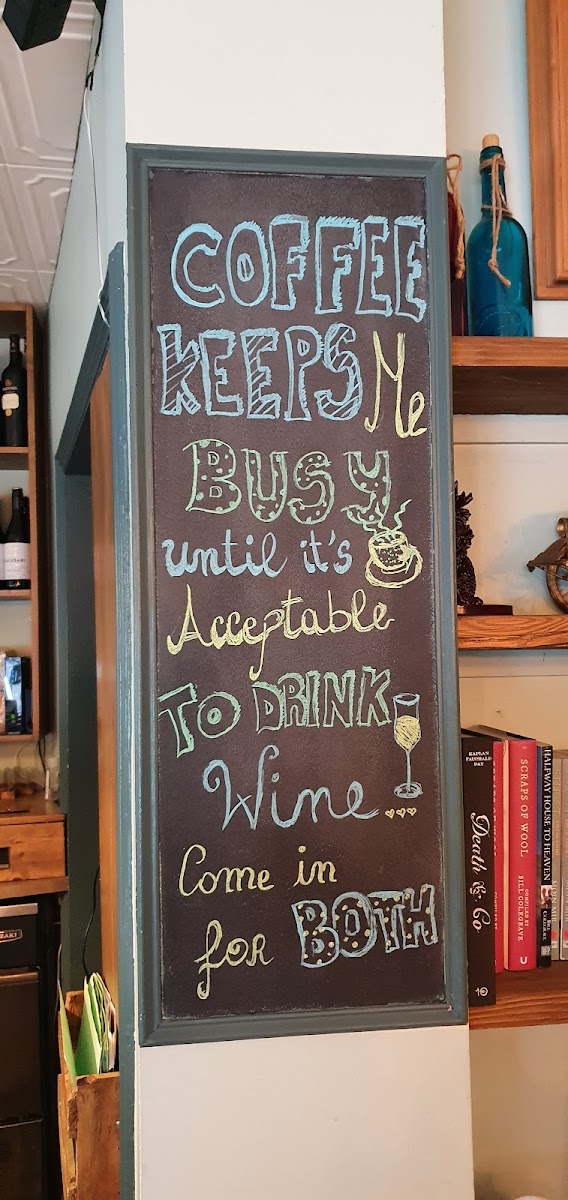 COFFEE
KEEPS Me
BUSY
until it's
Acceptable
TO DRINK
Wine...
Come in
for BOTH
KAPLAN
FAUCHALD
DAY
Death & Co
10
SCRAPS OF WOOL
COMPILED BY
BILL COLEGRAVE
U
HALFWAY HOUSE TO HEAVEN
BILL
COLEGRAVE